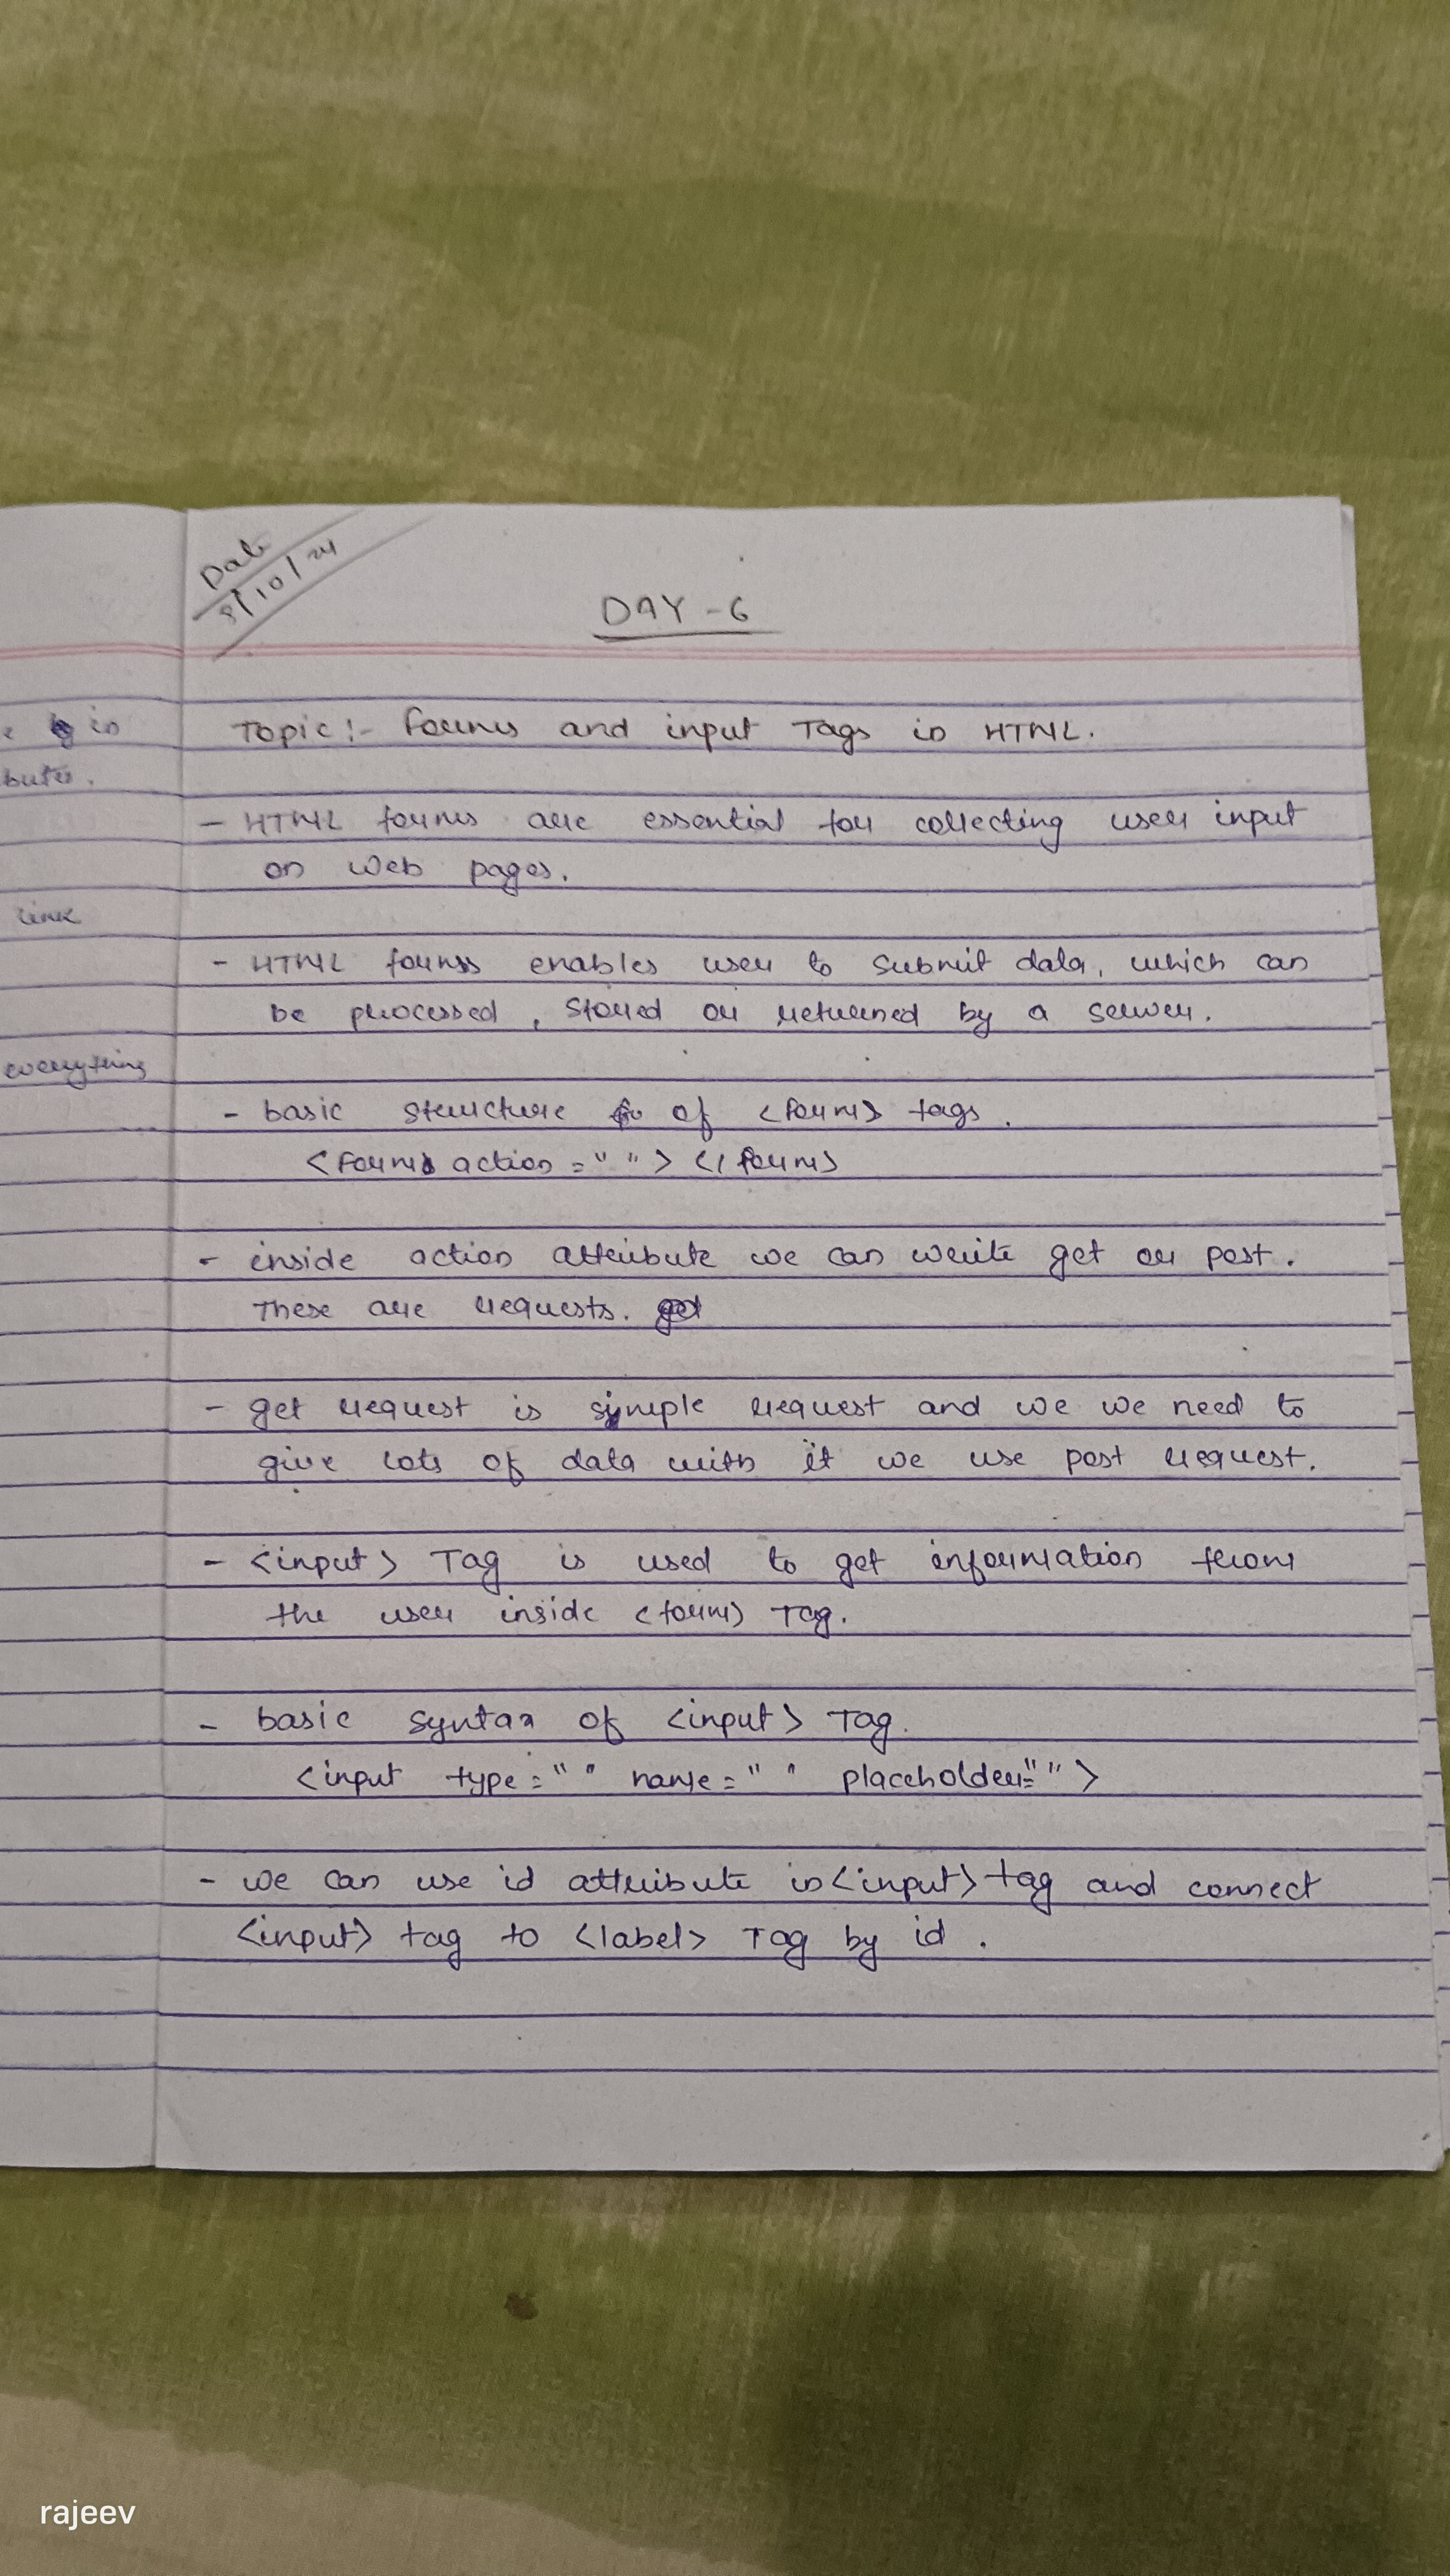 Date
8/10/24
DAY - 6
e in
butes.
link
everything
Topic :- Forms and input Tags in HTML.
- HTML forms are essential for collecting user input
on web pages.
- HTML forms enables user to submit data, which can
be processed, stored or returned by a server.
- basic structure of <form> tags.
<form action = " " > </form>
- inside action attribute we can write get or post.
These are requests.
- get request is simple request and we we need to
give lots of data with it we use post request.
- <input> Tag is used to get information from
the user inside <form> Tag.
- basic syntax of <input> Tag.
<input type = " " name = " " placeholder = " " >
- we can use id attribute in <input> tag and connect
<input> tag to <label> Tag by id .
rajeev